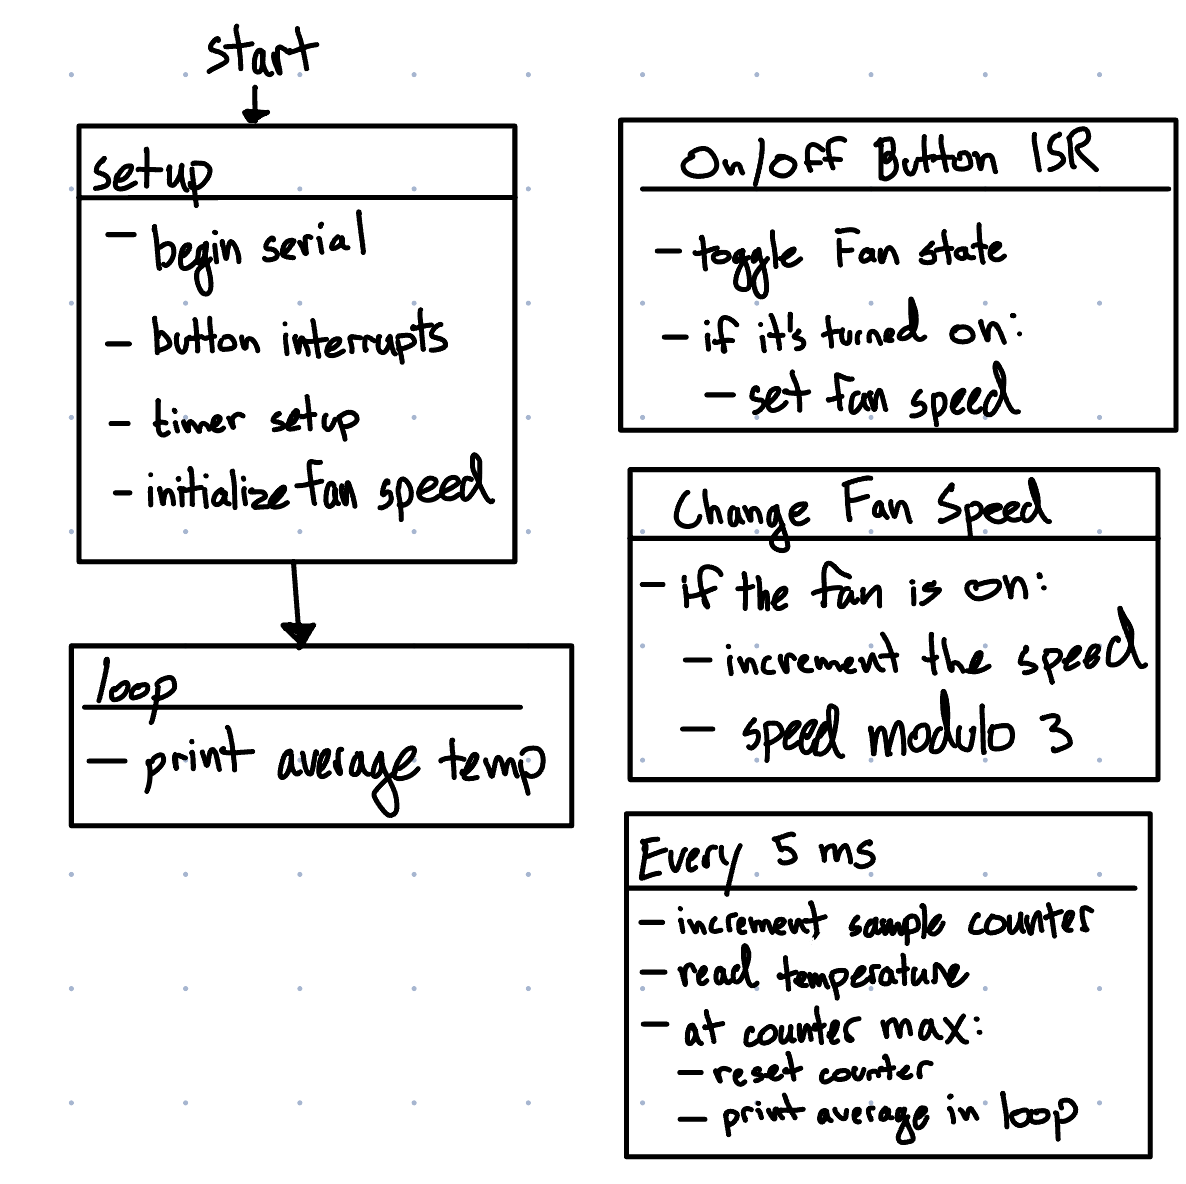 start
setup
- begin serial
- button interrupts
- timer setup
- initialize fan speed
loop
- print average temp
On/off Button ISR
- toggle Fan state
- if it's turned on:
- set fan speed
Change Fan Speed
- if the fan is on:
- increment the speed
- speed modulo 3
Every 5 ms
- increment sample counter
- read temperature
- at counter max:
- reset counter
- print average in loop